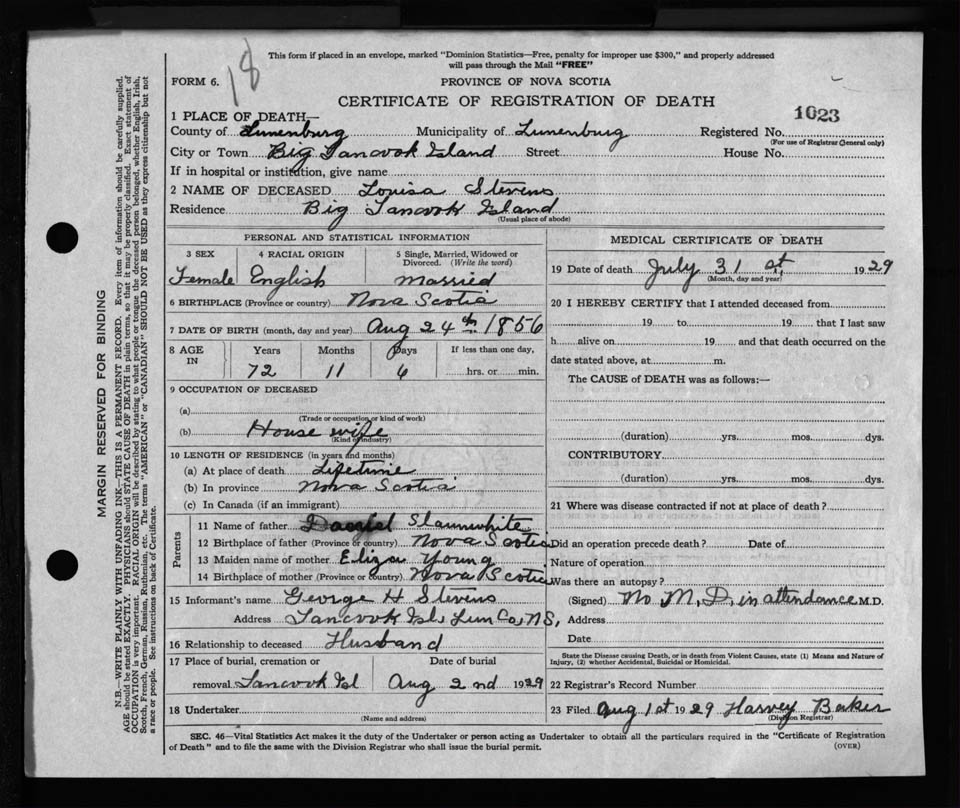 18
This form if placed in an envelope, marked "Dominion Statistics—Free, penalty for improper use $300," and properly addressed
will pass through the Mail "FREE"
FORM 6.
PROVINCE OF NOVA SCOTIA
CERTIFICATE OF REGISTRATION OF DEATH
1023
1 PLACE OF DEATH—
County of Lunenburg Municipality of Lunenburg Registered No.
(For use of Registrar General only)
City or Town Big Tancook Island Street House No.
If in hospital or institution, give name
2 NAME OF DECEASED Louisa Stevens
Residence Big Tancook Island
(Usual place of abode)
PERSONAL AND STATISTICAL INFORMATION
3 SEX 4 RACIAL ORIGIN 5 Single, Married, Widowed or
Divorced. (Write the word)
Female English Married
6 BIRTHPLACE (Province or country) Nova Scotia
7 DATE OF BIRTH (month, day and year) Aug 24th 1856
8 AGE IN Years Months Days If less than one day,
72 11 6 hrs. or min.
9 OCCUPATION OF DECEASED
(a)
(Trade or occupation or kind of work)
(b) House wife
(Kind of industry)
10 LENGTH OF RESIDENCE (in years and months)
(a) At place of death Lifetime
(b) In province Nova Scotia
(c) In Canada (if an immigrant)
Parents
11 Name of father Slaunwhite
12 Birthplace of father (Province or country) Nova Scotia
13 Maiden name of mother Eliza Young
14 Birthplace of mother (Province or country) Nova Scotia
15 Informant's name George H Stevens
Address Tancook Isl Lun Co, NS,
16 Relationship to deceased Husband
17 Place of burial, cremation or Date of burial
removal Tancook Isl Aug 2nd 1929
18 Undertaker
(Name and address)
MEDICAL CERTIFICATE OF DEATH
19 Date of death July 31st, 1929
(Month, day and year)
20 I HEREBY CERTIFY that I attended deceased from
19 to 19 that I last saw
h alive on 19 and that death occurred on the
date stated above, at m.
The CAUSE of DEATH was as follows:—
(duration) yrs. mos. dys.
CONTRIBUTORY
(duration) yrs. mos. dys.
21 Where was disease contracted if not at place of death?
Did an operation precede death? Date of
Nature of operation
Was there an autopsy?
(Signed) No M, D, in attendance M.D.
Address
Date
State the Disease causing Death, or in death from Violent Causes, state (1) Means and Nature of
Injury, (2) whether Accidental, Suicidal or Homicidal.
22 Registrar's Record Number
23 Filed Aug 1st 1929 Harvey Baker
(Division Registrar)
SEC. 46—Vital Statistics Act makes it the duty of the Undertaker or Person acting as Undertaker to obtain all the particulars required in the "Certificate of Registration
of Death" and to file the same with the Division Registrar who shall issue the burial permit.
(OVER)
MARGIN RESERVED FOR BINDING
N.B.—WRITE PLAINLY WITH UNFADING INK—THIS IS A PERMANENT RECORD. Every item of information should be carefully supplied.
AGE should be stated EXACTLY. PHYSICIANS should STATE CAUSE OF DEATH in plain terms, so that it may be properly classified. Exact statement of
OCCUPATION is very important. RACIAL ORIGIN will be described by stating to what people or tongue the deceased person belonged, whether English, Irish,
Scotch, French, German, Russian, Ruthenian, etc. The terms "AMERICAN" or "CANADIAN" SHOULD NOT BE USED as they express citizenship but not
a race or people. See instructions on back of Certificate.